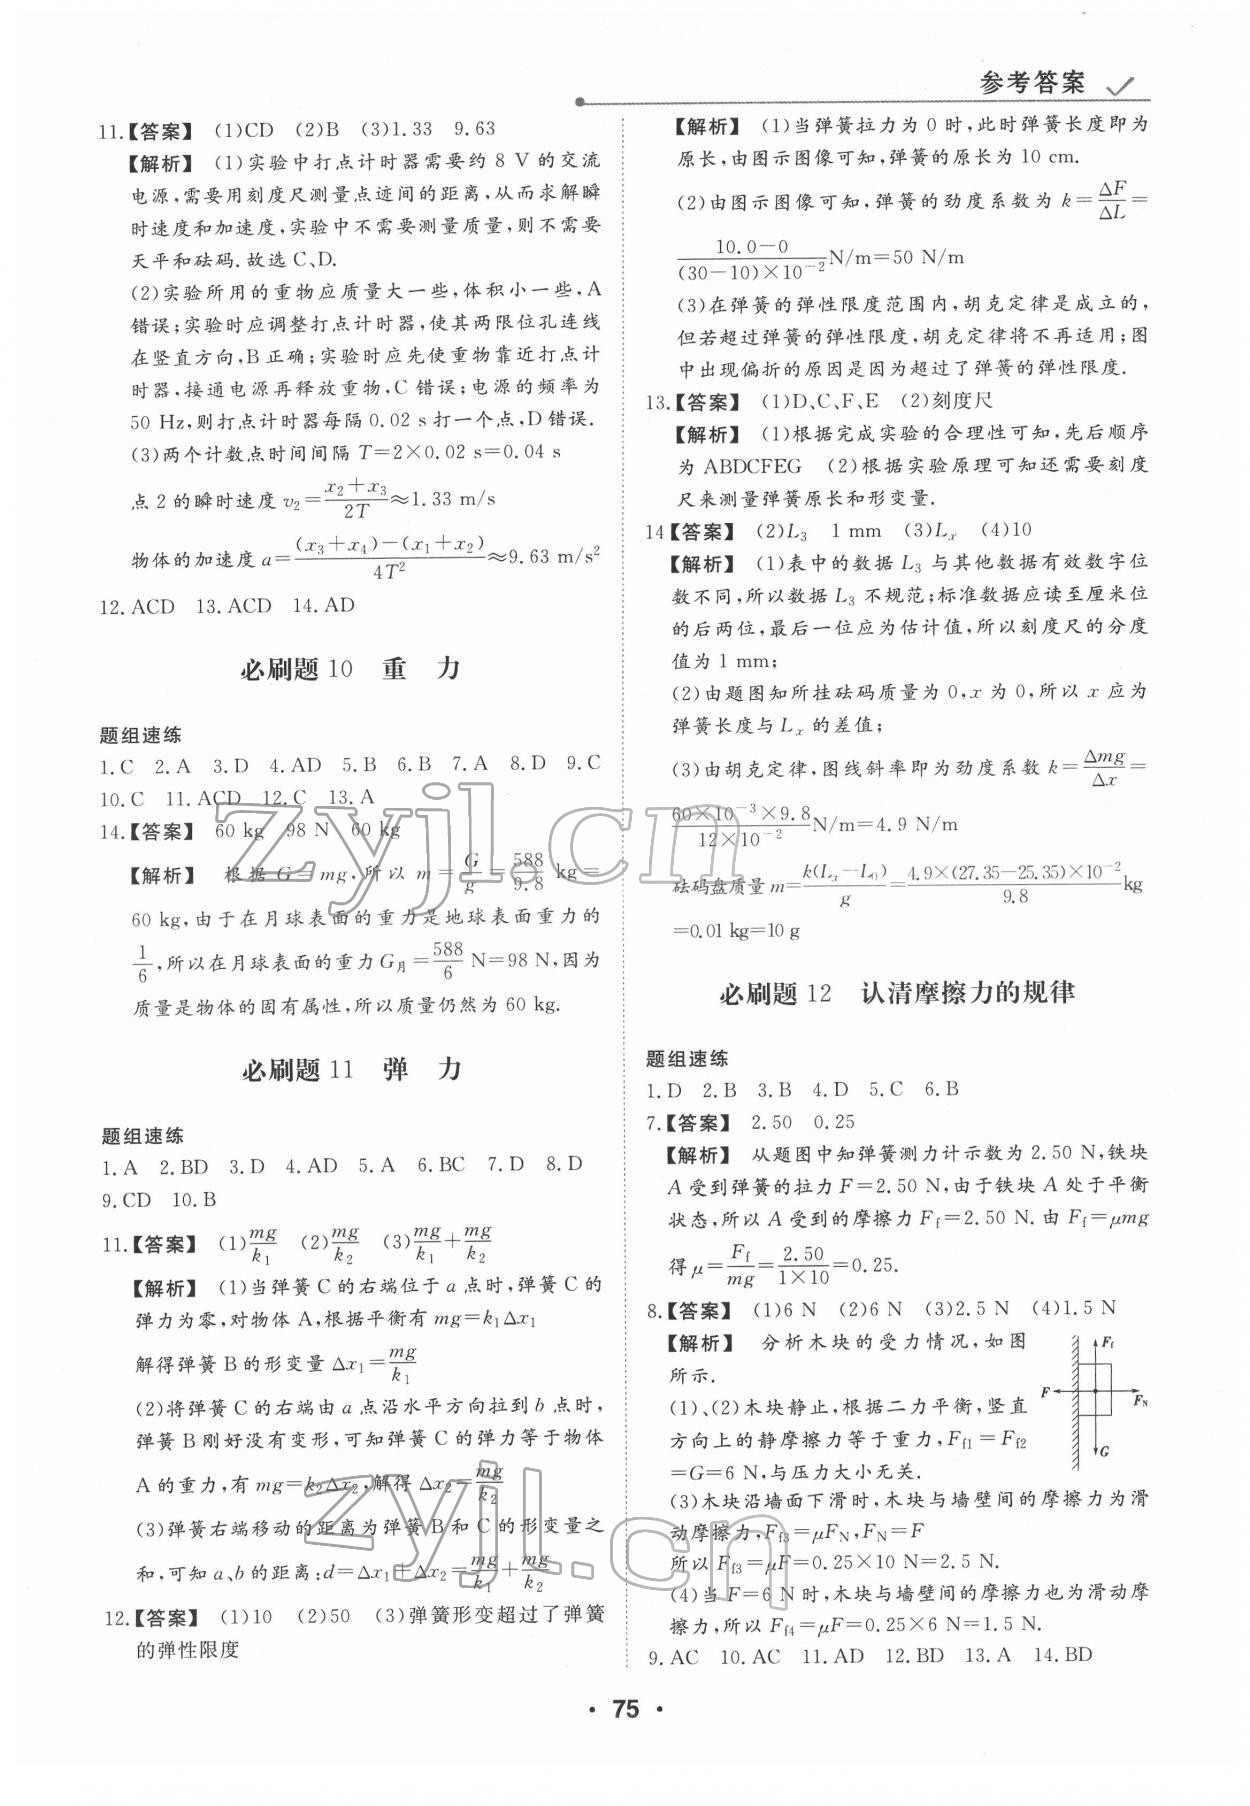 参考答案
11.【答案】 (1)CD (2)B (3)1.33 9.63
【解析】 (1)实验中打点计时器需要约 8 V 的交流
电源,需要用刻度尺测量点迹间的距离,从而求解瞬
时速度和加速度,实验中不需要测量质量,则不需要
天平和砝码.故选 C、D.
(2)实验所用的重物应质量大一些,体积小一些,A
错误;实验时应调整打点计时器,使其两限位孔连线
在竖直方向,B 正确;实验时应先使重物靠近打点计
时器,接通电源再释放重物,C 错误;电源的频率为
50 Hz,则打点计时器每隔 0.02 s 打一个点,D 错误.
(3)两个计数点时间间隔 T=2×0.02 s=0.04 s
点 2 的瞬时速度 v₂=(x₂+x₃)/2T≈1.33 m/s
物体的加速度 a=((x₃+x₄)-(x₁+x₂))/4T²≈9.63 m/s²
12. ACD 13. ACD 14. AD
必刷题 10 重 力
题组速练
1. C 2. A 3. D 4. AD 5. B 6. B 7. A 8. D 9. C
10. C 11. ACD 12. C 13. A
14.【答案】 60 kg 98 N 60 kg
【解析】 根据 G=mg,所以 m=G/g=588/9.8 kg=
60 kg,由于在月球表面的重力是地球表面重力的
1/6,所以在月球表面的重力 G月=588/6 N=98 N,因为
质量是物体的固有属性,所以质量仍然为 60 kg.
必刷题 11 弹 力
题组速练
1. A 2. BD 3. D 4. AD 5. A 6. BC 7. D 8. D
9. CD 10. B
11.【答案】 (1)mg/k₁ (2)mg/k₂ (3)mg/k₁+mg/k₂
【解析】 (1)当弹簧 C 的右端位于 a 点时,弹簧 C 的
弹力为零,对物体 A,根据平衡有 mg=k₁Δx₁
解得弹簧 B 的形变量 Δx₁=mg/k₁
(2)将弹簧 C 的右端由 a 点沿水平方向拉到 b 点时,
弹簧 B 刚好没有变形,可知弹簧 C 的弹力等于物体
A 的重力,有 mg=k₂Δx₂,解得 Δx₂=mg/k₂
(3)弹簧右端移动的距离为弹簧 B 和 C 的形变量之
和,可知 a、b 的距离:d=Δx₁+Δx₂=mg/k₁+mg/k₂
12.【答案】 (1)10 (2)50 (3)弹簧形变超过了弹簧
的弹性限度
【解析】 (1)当弹簧拉力为 0 时,此时弹簧长度即为
原长,由图示图像可知,弹簧的原长为 10 cm.
(2)由图示图像可知,弹簧的劲度系数为 k=ΔF/ΔL=
(10.0-0)/((30-10)×10⁻²) N/m=50 N/m
(3)在弹簧的弹性限度范围内,胡克定律是成立的,
但若超过弹簧的弹性限度,胡克定律将不再适用;图
中出现偏折的原因是因为超过了弹簧的弹性限度.
13.【答案】 (1)D、C、F、E (2)刻度尺
【解析】 (1)根据完成实验的合理性可知,先后顺序
为 ABDCFEG (2)根据实验原理可知还需要刻度
尺来测量弹簧原长和形变量.
14【答案】 (2)L₃ 1 mm (3)Lₓ (4)10
【解析】 (1)表中的数据 L₃ 与其他数据有效数字位
数不同,所以数据 L₃ 不规范;标准数据应读至厘米位
的后两位,最后一位应为估计值,所以刻度尺的分度
值为 1 mm;
(2)由题图知所挂砝码质量为 0,x 为 0,所以 x 应为
弹簧长度与 Lₓ 的差值;
(3)由胡克定律,图线斜率即为劲度系数 k=Δmg/Δx=
(60×10⁻³×9.8)/(12×10⁻²) N/m=4.9 N/m
砝码盘质量 m=k(Lₓ-L₀)/g=(4.9×(27.35-25.35)×10⁻²)/9.8 kg
=0.01 kg=10 g
必刷题 12 认清摩擦力的规律
题组速练
1. D 2. B 3. B 4. D 5. C 6. B
7.【答案】 2.50 0.25
【解析】 从题图中知弹簧测力计示数为 2.50 N,铁块
A 受到弹簧的拉力 F=2.50 N,由于铁块 A 处于平衡
状态,所以 A 受到的摩擦力 Ff=2.50 N.由 Ff=μmg
得 μ=Ff/mg=2.50/(1×10)=0.25.
8.【答案】 (1)6 N (2)6 N (3)2.5 N (4)1.5 N
【解析】 分析木块的受力情况,如图
所示.
(1)、(2)木块静止,根据二力平衡,竖直
方向上的静摩擦力等于重力,Ff1=Ff2
=G=6 N,与压力大小无关.
Ff
F
FN
G
(3)木块沿墙面下滑时,木块与墙壁间的摩擦力为滑
动摩擦力,Ff3=μFN,FN=F
所以 Ff3=μF=0.25×10 N=2.5 N.
(4)当 F=6 N 时,木块与墙壁间的摩擦力也为滑动摩
擦力,所以 Ff4=μF=0.25×6 N=1.5 N.
9. AC 10. AC 11. AD 12. BD 13. A 14. BD
· 75 ·
zyjl.cn
zyjl.cn